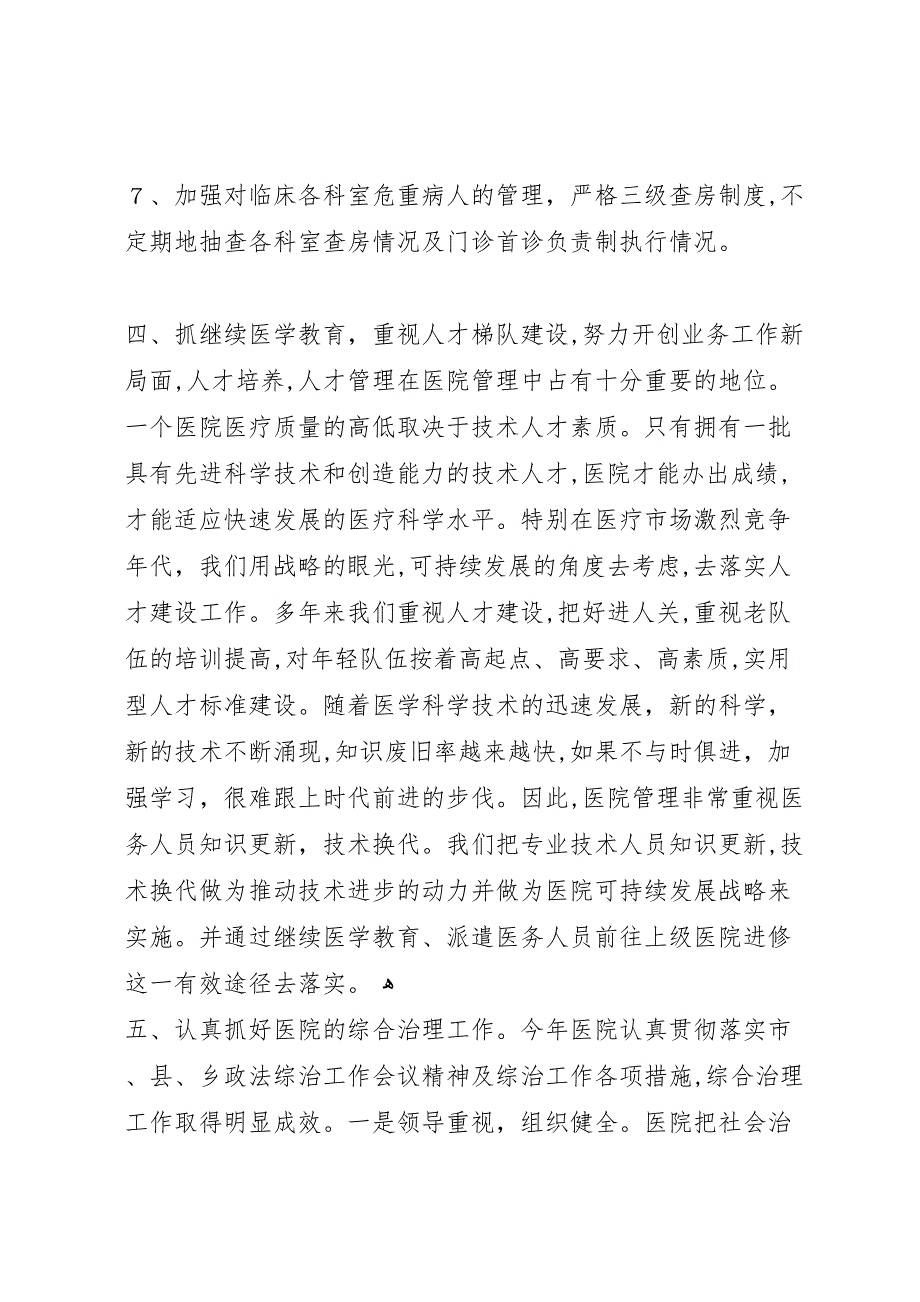 ７、加强对临床各科室危重病人的管理，严格三级查房制度,不
定期地抽查各科室查房情况及门诊首诊负责制执行情况。
四、抓继续医学教育，重视人才梯队建设,努力开创业务工作新
局面,人才培养,人才管理在医院管理中占有十分重要的地位。
一个医院医疗质量的高低取决于技术人才素质。只有拥有一批
具有先进科学技术和创造能力的技术人才,医院才能办出成绩,
才能适应快速发展的医疗科学水平。特别在医疗市场激烈竞争
年代，我们用战略的眼光,可持续发展的角度去考虑,去落实人
才建设工作。多年来我们重视人才建设,把好进人关,重视老队
伍的培训提高,对年轻队伍按着高起点、高要求、高素质,实用
型人才标准建设。随着医学科学技术的迅速发展，新的科学，
新的技术不断涌现,知识废旧率越来越快,如果不与时俱进，加
强学习，很难跟上时代前进的步伐。因此,医院管理非常重视医
务人员知识更新，技术换代。我们把专业技术人员知识更新,技
术换代做为推动技术进步的动力并做为医院可持续发展战略来
实施。并通过继续医学教育、派遣医务人员前往上级医院进修
这一有效途径去落实。 ﻫ
五、认真抓好医院的综合治理工作。今年医院认真贯彻落实市
、县、乡政法综治工作会议精神及综治工作各项措施,综合治理
工作取得明显成效。一是领导重视，组织健全。医院把社会治